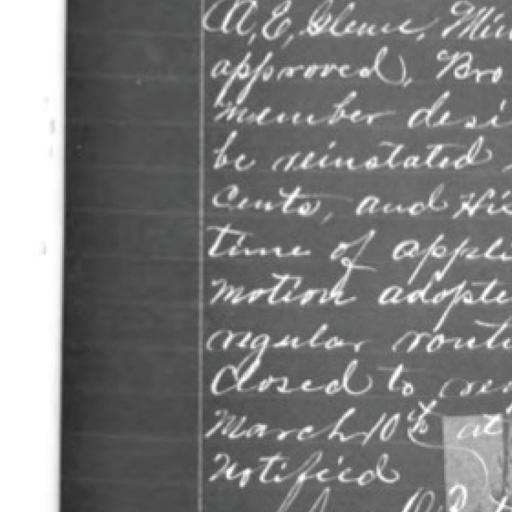 A, E, Glenn, Min
approved, Bro
member desi
be reinstated
Cents, and His
time of appli
motion adopte
regular routi
closed to
March 10th at
Notified